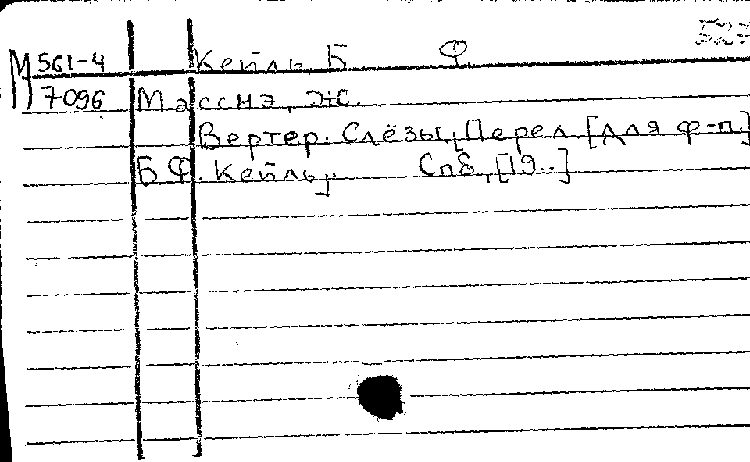 М 561-4 Кейль Б. Ф.
7096 Массна, Ж.
Вертер. Слёзы. Перел. [для ф-п.]
Б.Ф. Кейль, Спб, [19..]